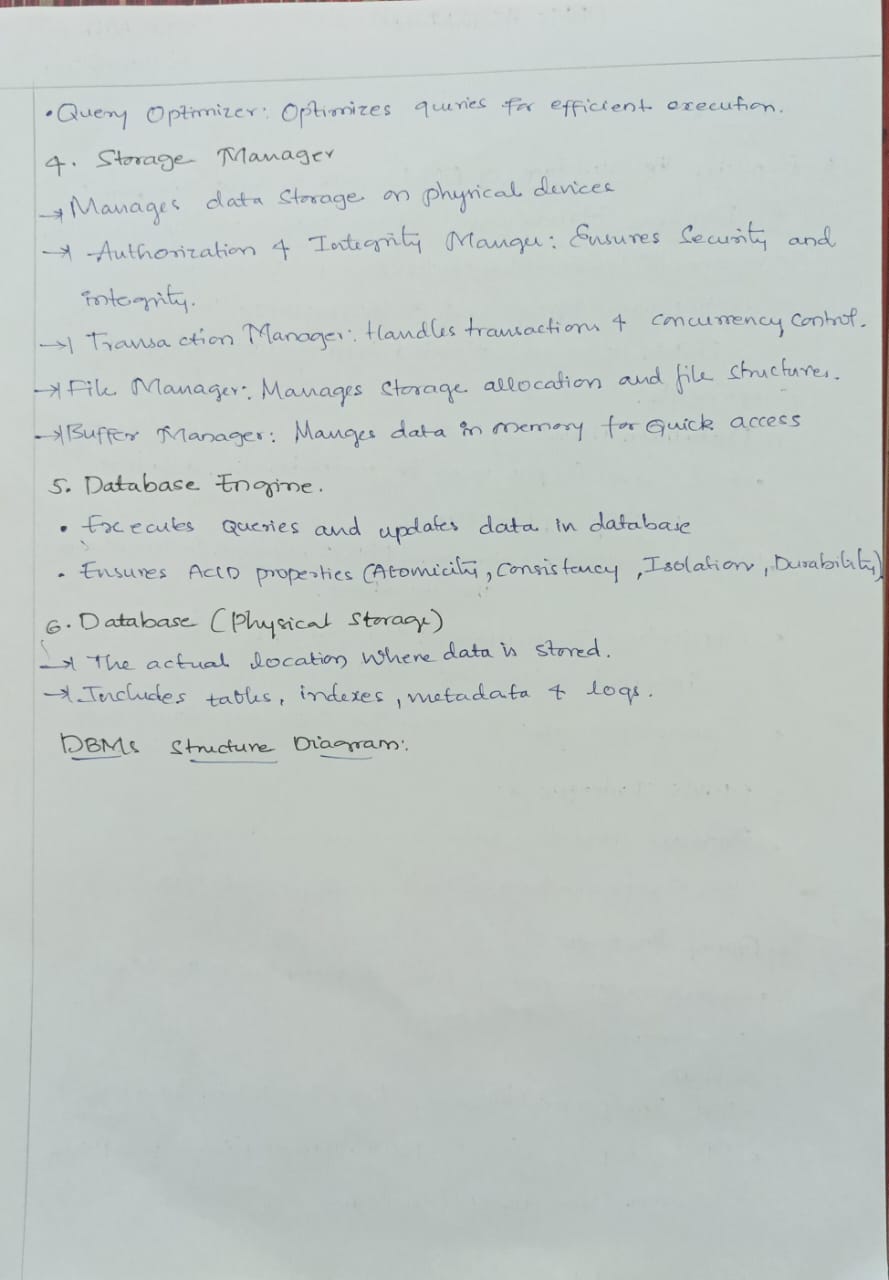 •Query Optimizer: Optimizes queries for efficient execution.
4. Storage Manager
→ Manages data Storage on physical devices
→ Authorization & Integrity Manger: Ensures Security and
integrity.
→ Transaction Manager: Handles transactions & concurrency control.
→ File Manager: Manages storage allocation and file structures.
→ Buffer Manager: Manges data in memory for Quick access
5. Database Engine.
• Executes Queries and updates data in database
• Ensures ACID properties (Atomicity, Consistency, Isolation, Durability)
6. Database (Physical Storage)
→ The actual location where data is stored.
→ Includes tables, indexes, metadata & logs.
DBMS Structure Diagram: